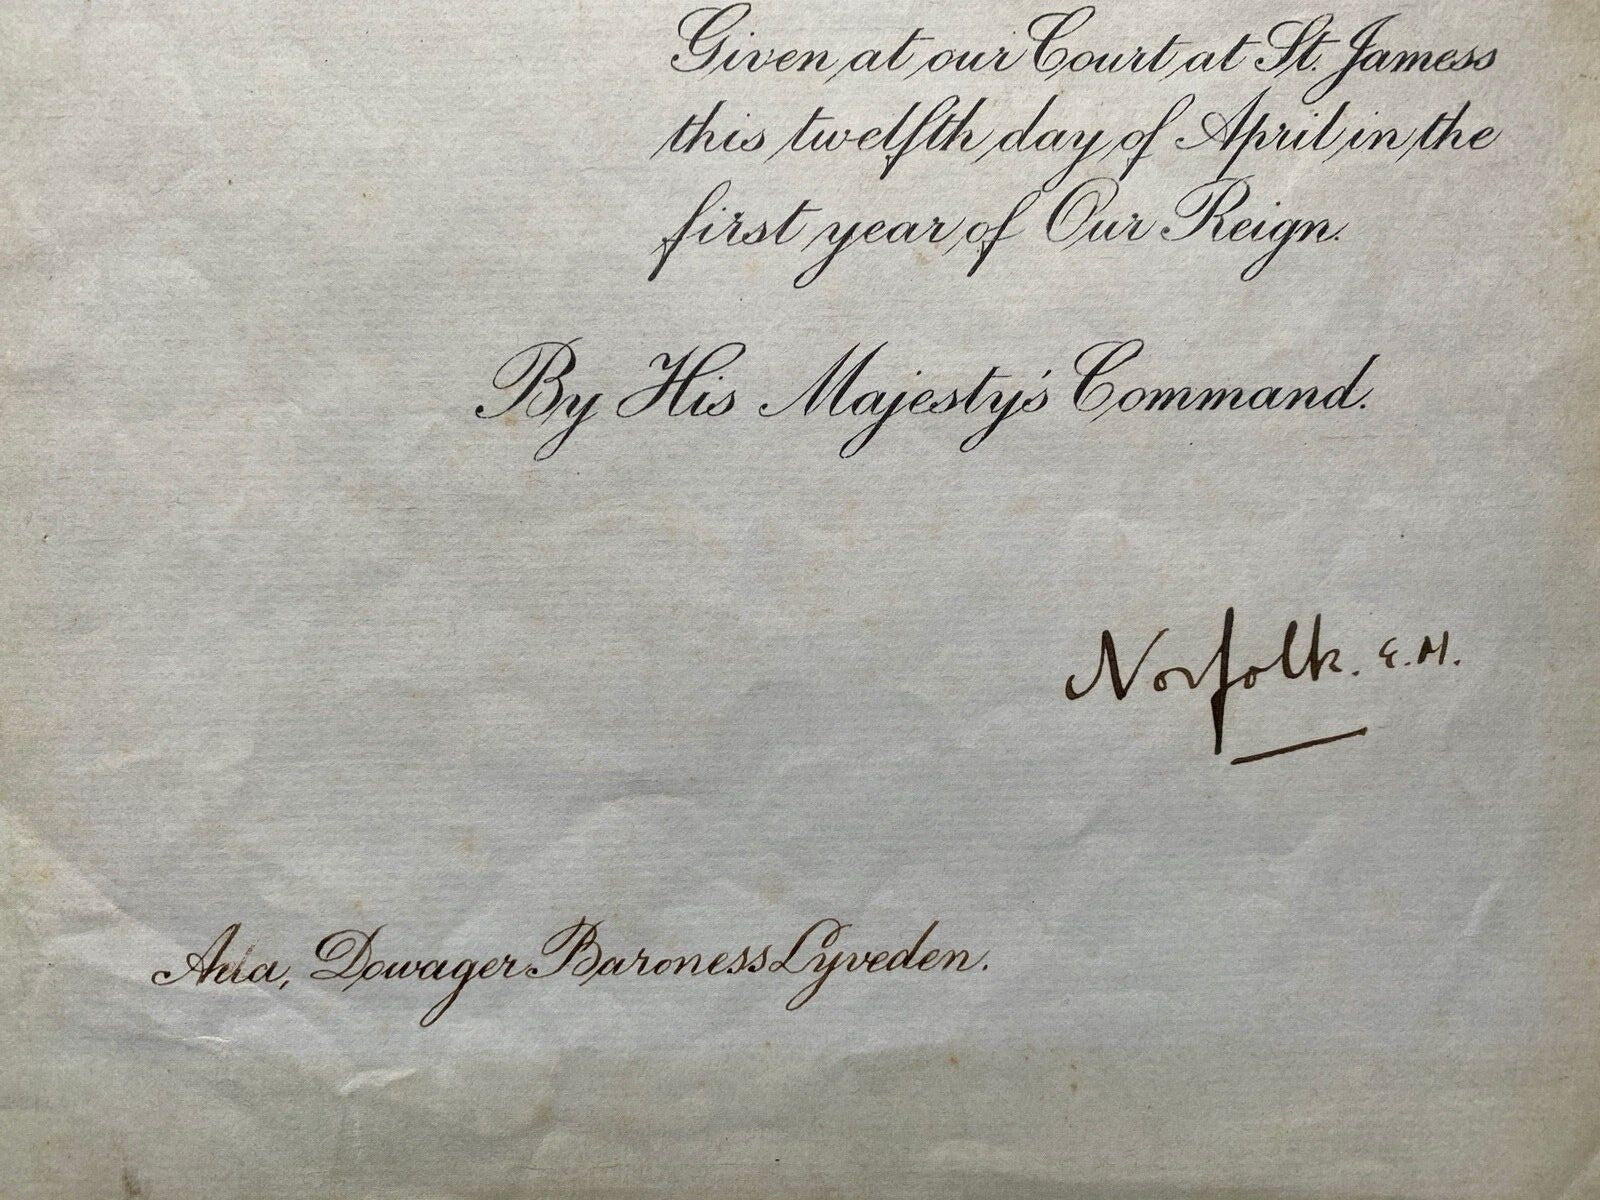 Given at our Court at St. Jamess
this twelfth day of April in the
first year of Our Reign.
By His Majesty's Command.
Norfolk. E.M.
Ada, Dowager Baroness Lyveden.